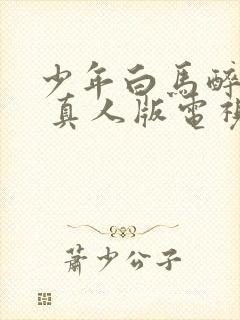 少年白馬醉
真人版電視
蕭少公子